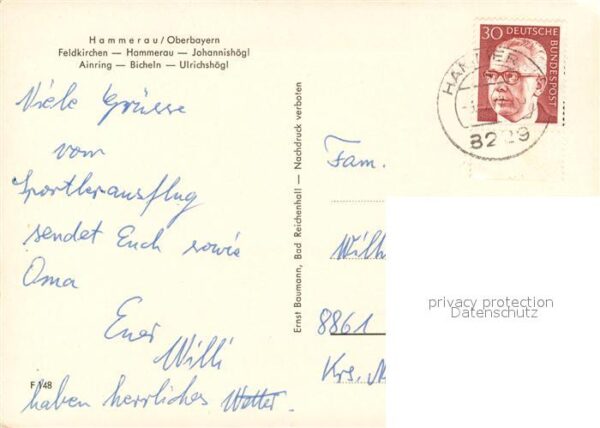 Hammerau/Oberbayern
Feldkirchen — Hammerau — Johannishögl
Ainring — Bicheln — Ulrichshögl
Viele Grüsse
vom
Sportlerausflug
sendet Euch sowie
Oma
Euer
Willi
haben herrliches Wetter.
F 148
Ernst Baumann, Bad Reichenhall — Nachdruck verboten
30 DEUTSCHE
BUNDESPOST
8229
Fam.
Wilh
8861
Krs. N
privacy protection
Datenschutz